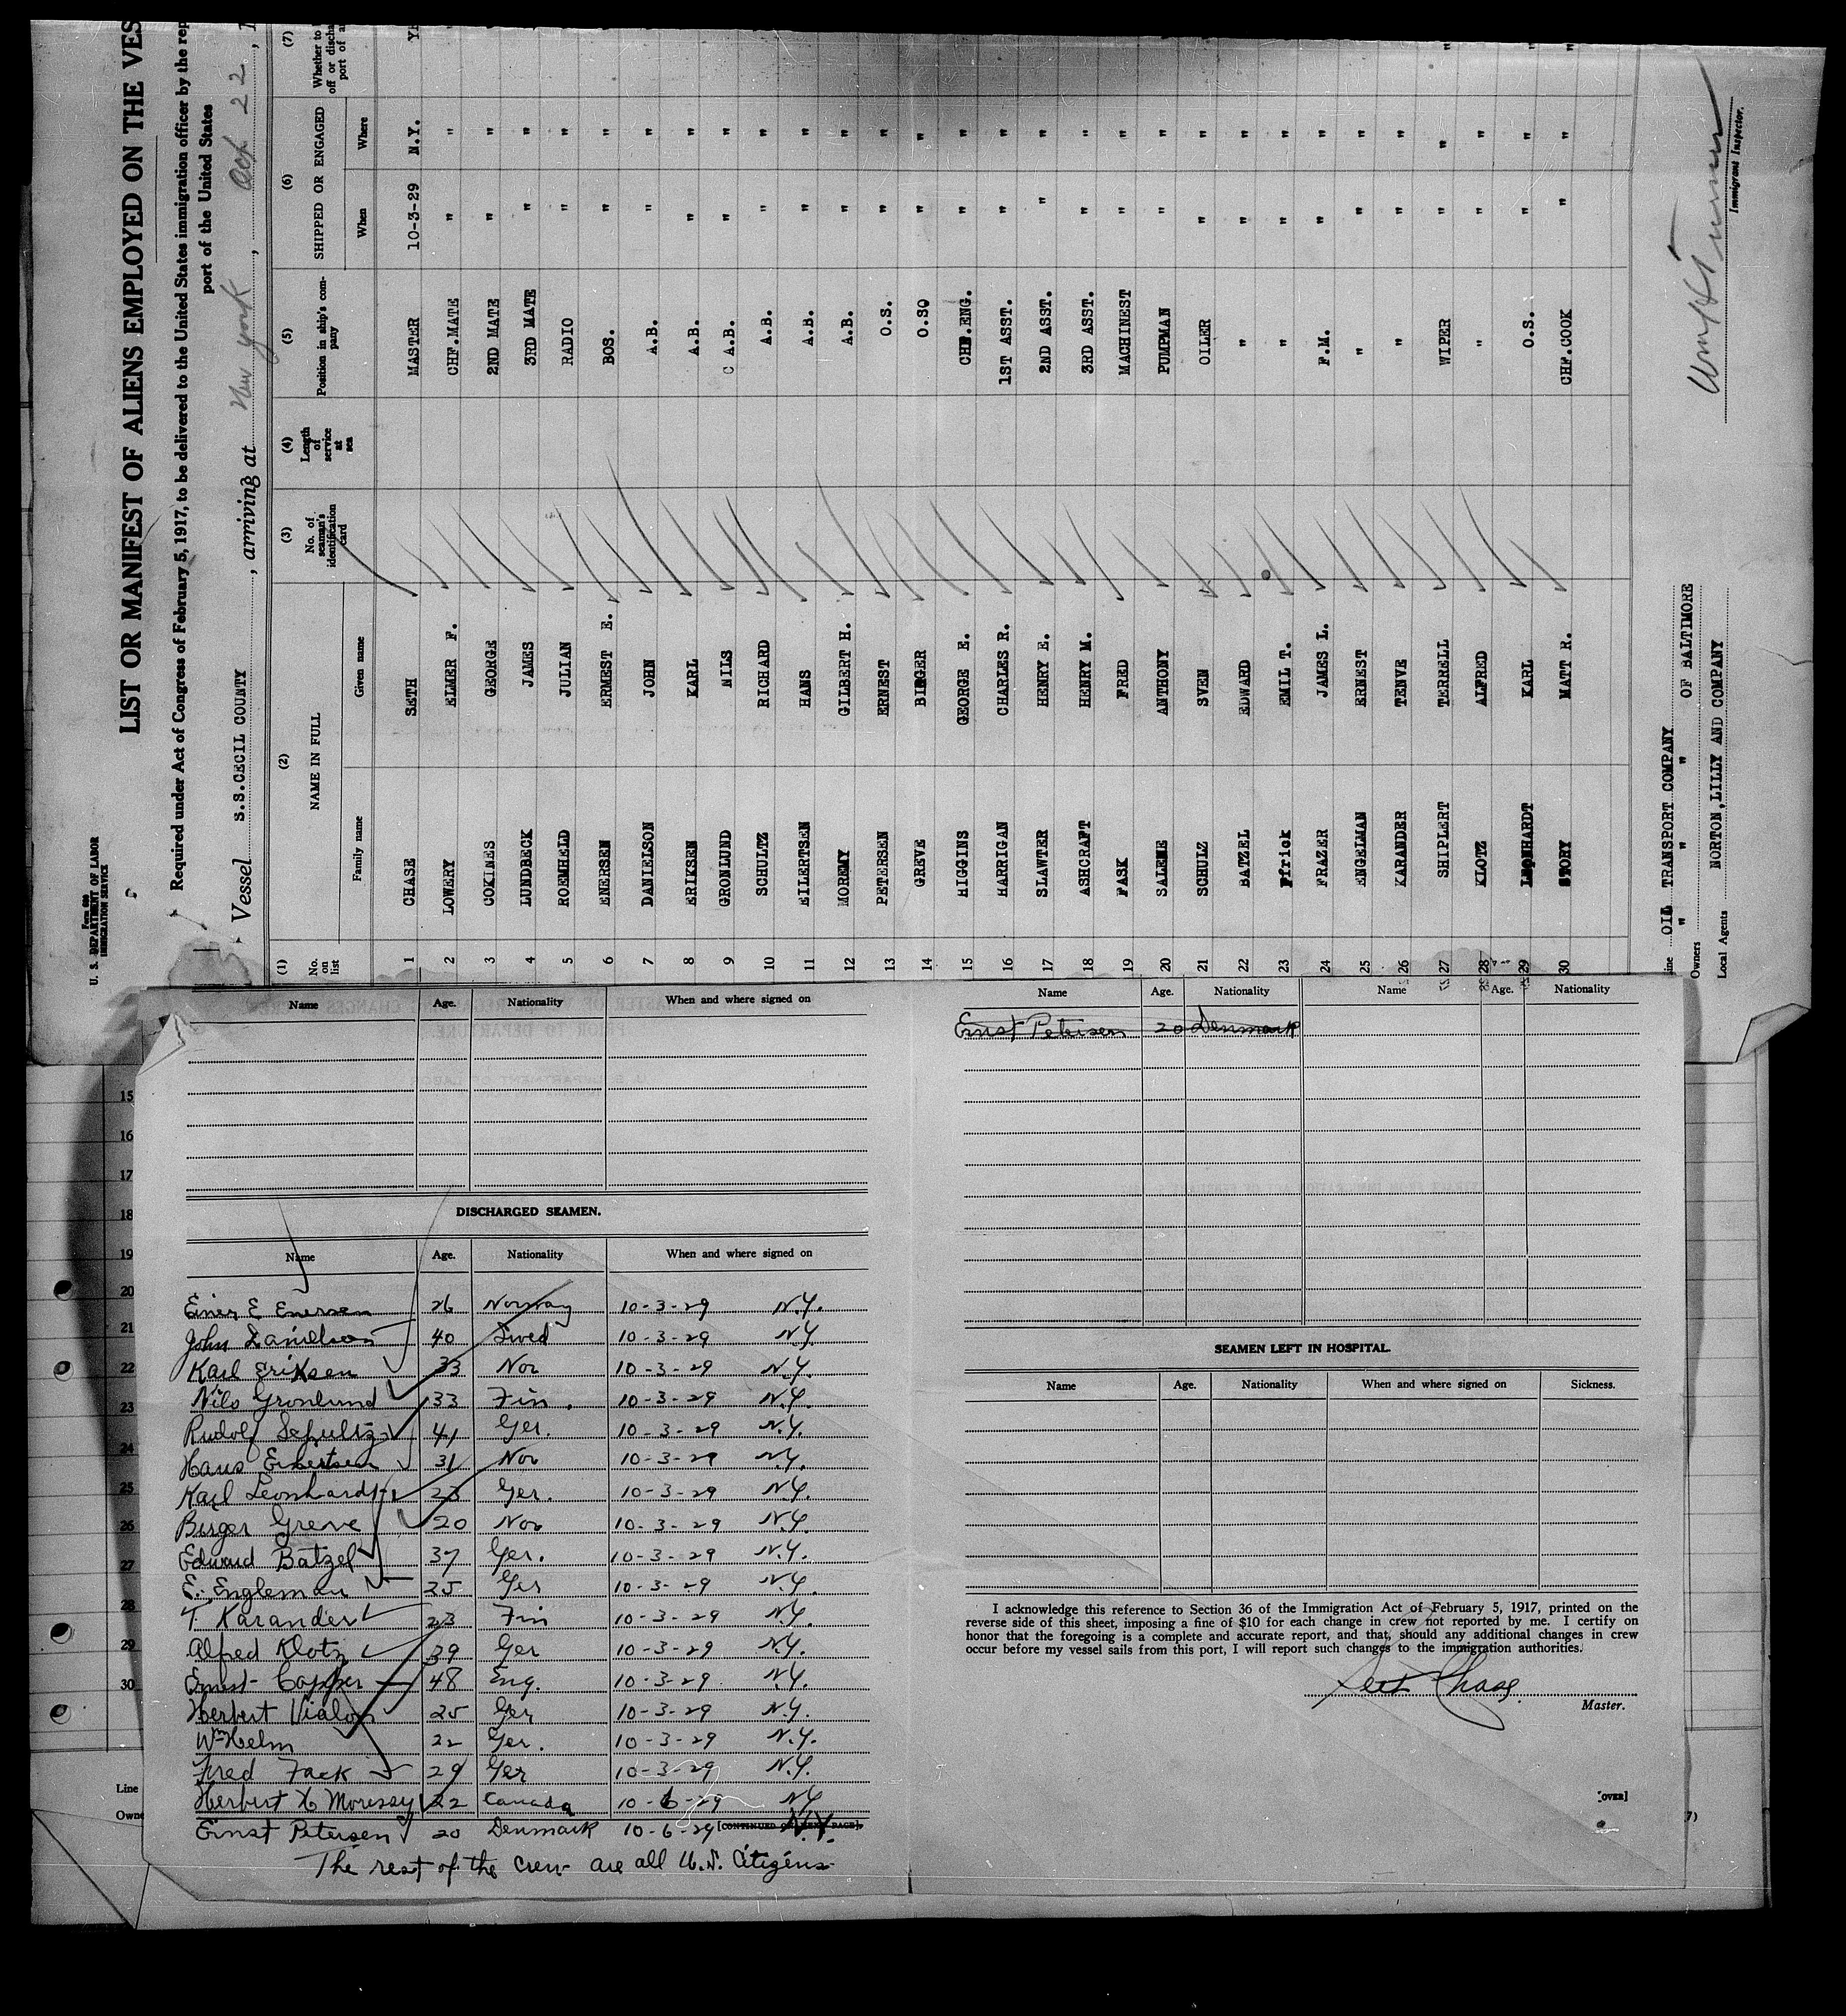 Form 680
U. S. DEPARTMENT OF LABOR
IMMIGRATION SERVICE
LIST OR MANIFEST OF ALIENS EMPLOYED ON THE VES
Required under Act of Congress of February 5, 1917, to be delivered to the United States immigration officer by the rep
port of the United States
Vessel S.S.CECIL COUNTY, arriving at New York, Oct 22,
(1) (2) (3) (4) (5) (6) (7)
No. on list NAME IN FULL No. of seaman's identification card Length of service at sea Position in ship's company SHIPPED OR ENGAGED Whether to
off or discha
port of a
Family name Given name When Where
1 CHASE SETH MASTER 10-3-29 N.Y. YE
2 LOWERY ELMER F. CHF.MATE " "
3 COKINES GEORGE 2ND MATE " "
4 LUNDBECK JAMES 3RD MATE " "
5 ROEMHELD JULIAN RADIO " "
6 ENERSEN ERMEST E. BOS. " "
7 DANIELSON JOHN A.B. " "
8 ERIKSEN KARL A.B. " "
9 GRONLUND NILS C A.B. " "
10 SCHULTZ RICHARD A.B. " "
11 EILERTSEN HANS A.B. " "
12 MOREMY GILBERT H. A.B. " "
13 PETERSEN ERNEST O.S. " "
14 GREVE BINGER O.SO " "
15 HIGGINS GEORGE E. CHF.ENG. " "
16 HARRIGAN CHARLES R. 1ST ASST. " "
17 SLAWTER HENRY E. 2ND ASST. " "
18 ASHCRAFT HENRY M. 3RD ASST. " "
19 FASK FRED MACHINEST " "
20 SALEME ANTHONY PUMPMAN " "
21 SCHULZ SVEN OILER " "
22 BATZEL EDWARD " " "
23 Pfrick EMIL T. " " "
24 FRAZER JAMES L. F.M. " "
25 ENGELMAN ERNEST " " "
26 KARANDER TENVE " " "
27 SHIPLERT TERRELL WIPER " " "
28 KLOTZ ALFRED " " "
29 LEONHARDT KARL O.S. " " "
30 STORY MATT R. CHF.COOK " " "
Line OIL TRANSPORT COMPANY
Owners " " " OF BALTIMORE
Local Agents NORTON,LILLY AND COMPANY
Immigrant Inspector.
Name Age. Nationality When and where signed on
DISCHARGED SEAMEN.
Name Age. Nationality When and where signed on
Einer E Enersen 26 Norway 10-3-29 N.Y.
John Danielson 40 Swed 10-3-29 N.Y.
Karl Eriksen 33 Nor 10-3-29 N.Y.
Nils Gronlund 33 Fin. 10-3-29 N.Y.
Rudolf Schultz 41 Ger. 10-3-29 N.Y.
Hans Eilertsen 31 Nor 10-3-29 N.Y.
Karl Leonhardt 23 Ger. 10-3-29 N.Y.
Birger Greve 20 Nor 10-3-29 N.Y.
Edward Batzel 37 Ger. 10-3-29 N.Y.
E. Engleman 25 Ger 10-3-29 N.Y.
T. Karander 23 Fin 10-3-29 N.Y.
Alfred Klotz 39 Ger 10-3-29 N.Y.
Ernst Copper 48 Eng. 10-3-29 N.Y.
Herbert Vialon 25 Ger 10-3-29 N.Y.
Wm Helm 22 Ger. 10-3-29 N.Y.
Fred Fack 29 Ger 10-3-29 N.Y.
Herbert H Moressy 22 Canada 10-6-29 N.Y.
[CONTINUED ON NEXT PAGE].
Ernst Petersen 20 Denmark 10-6-29 N.Y.
The rest of the crew are all U.S. Citizens
Name Age. Nationality Name Age. Nationality
Ernst Petersen 20 Denmark
SEAMEN LEFT IN HOSPITAL.
Name Age. Nationality When and where signed on Sickness.
I acknowledge this reference to Section 36 of the Immigration Act of February 5, 1917, printed on the
reverse side of this sheet, imposing a fine of $10 for each change in crew not reported by me. I certify on
honor that the foregoing is a complete and accurate report, and that, should any additional changes in crew
occur before my vessel sails from this port, I will report such changes to the immigration authorities.
Seth Chase
Master.
[OVER]
15
16
17
18
19
20
21
22
23
24
25
26
27
28
29
30
Line
Owne